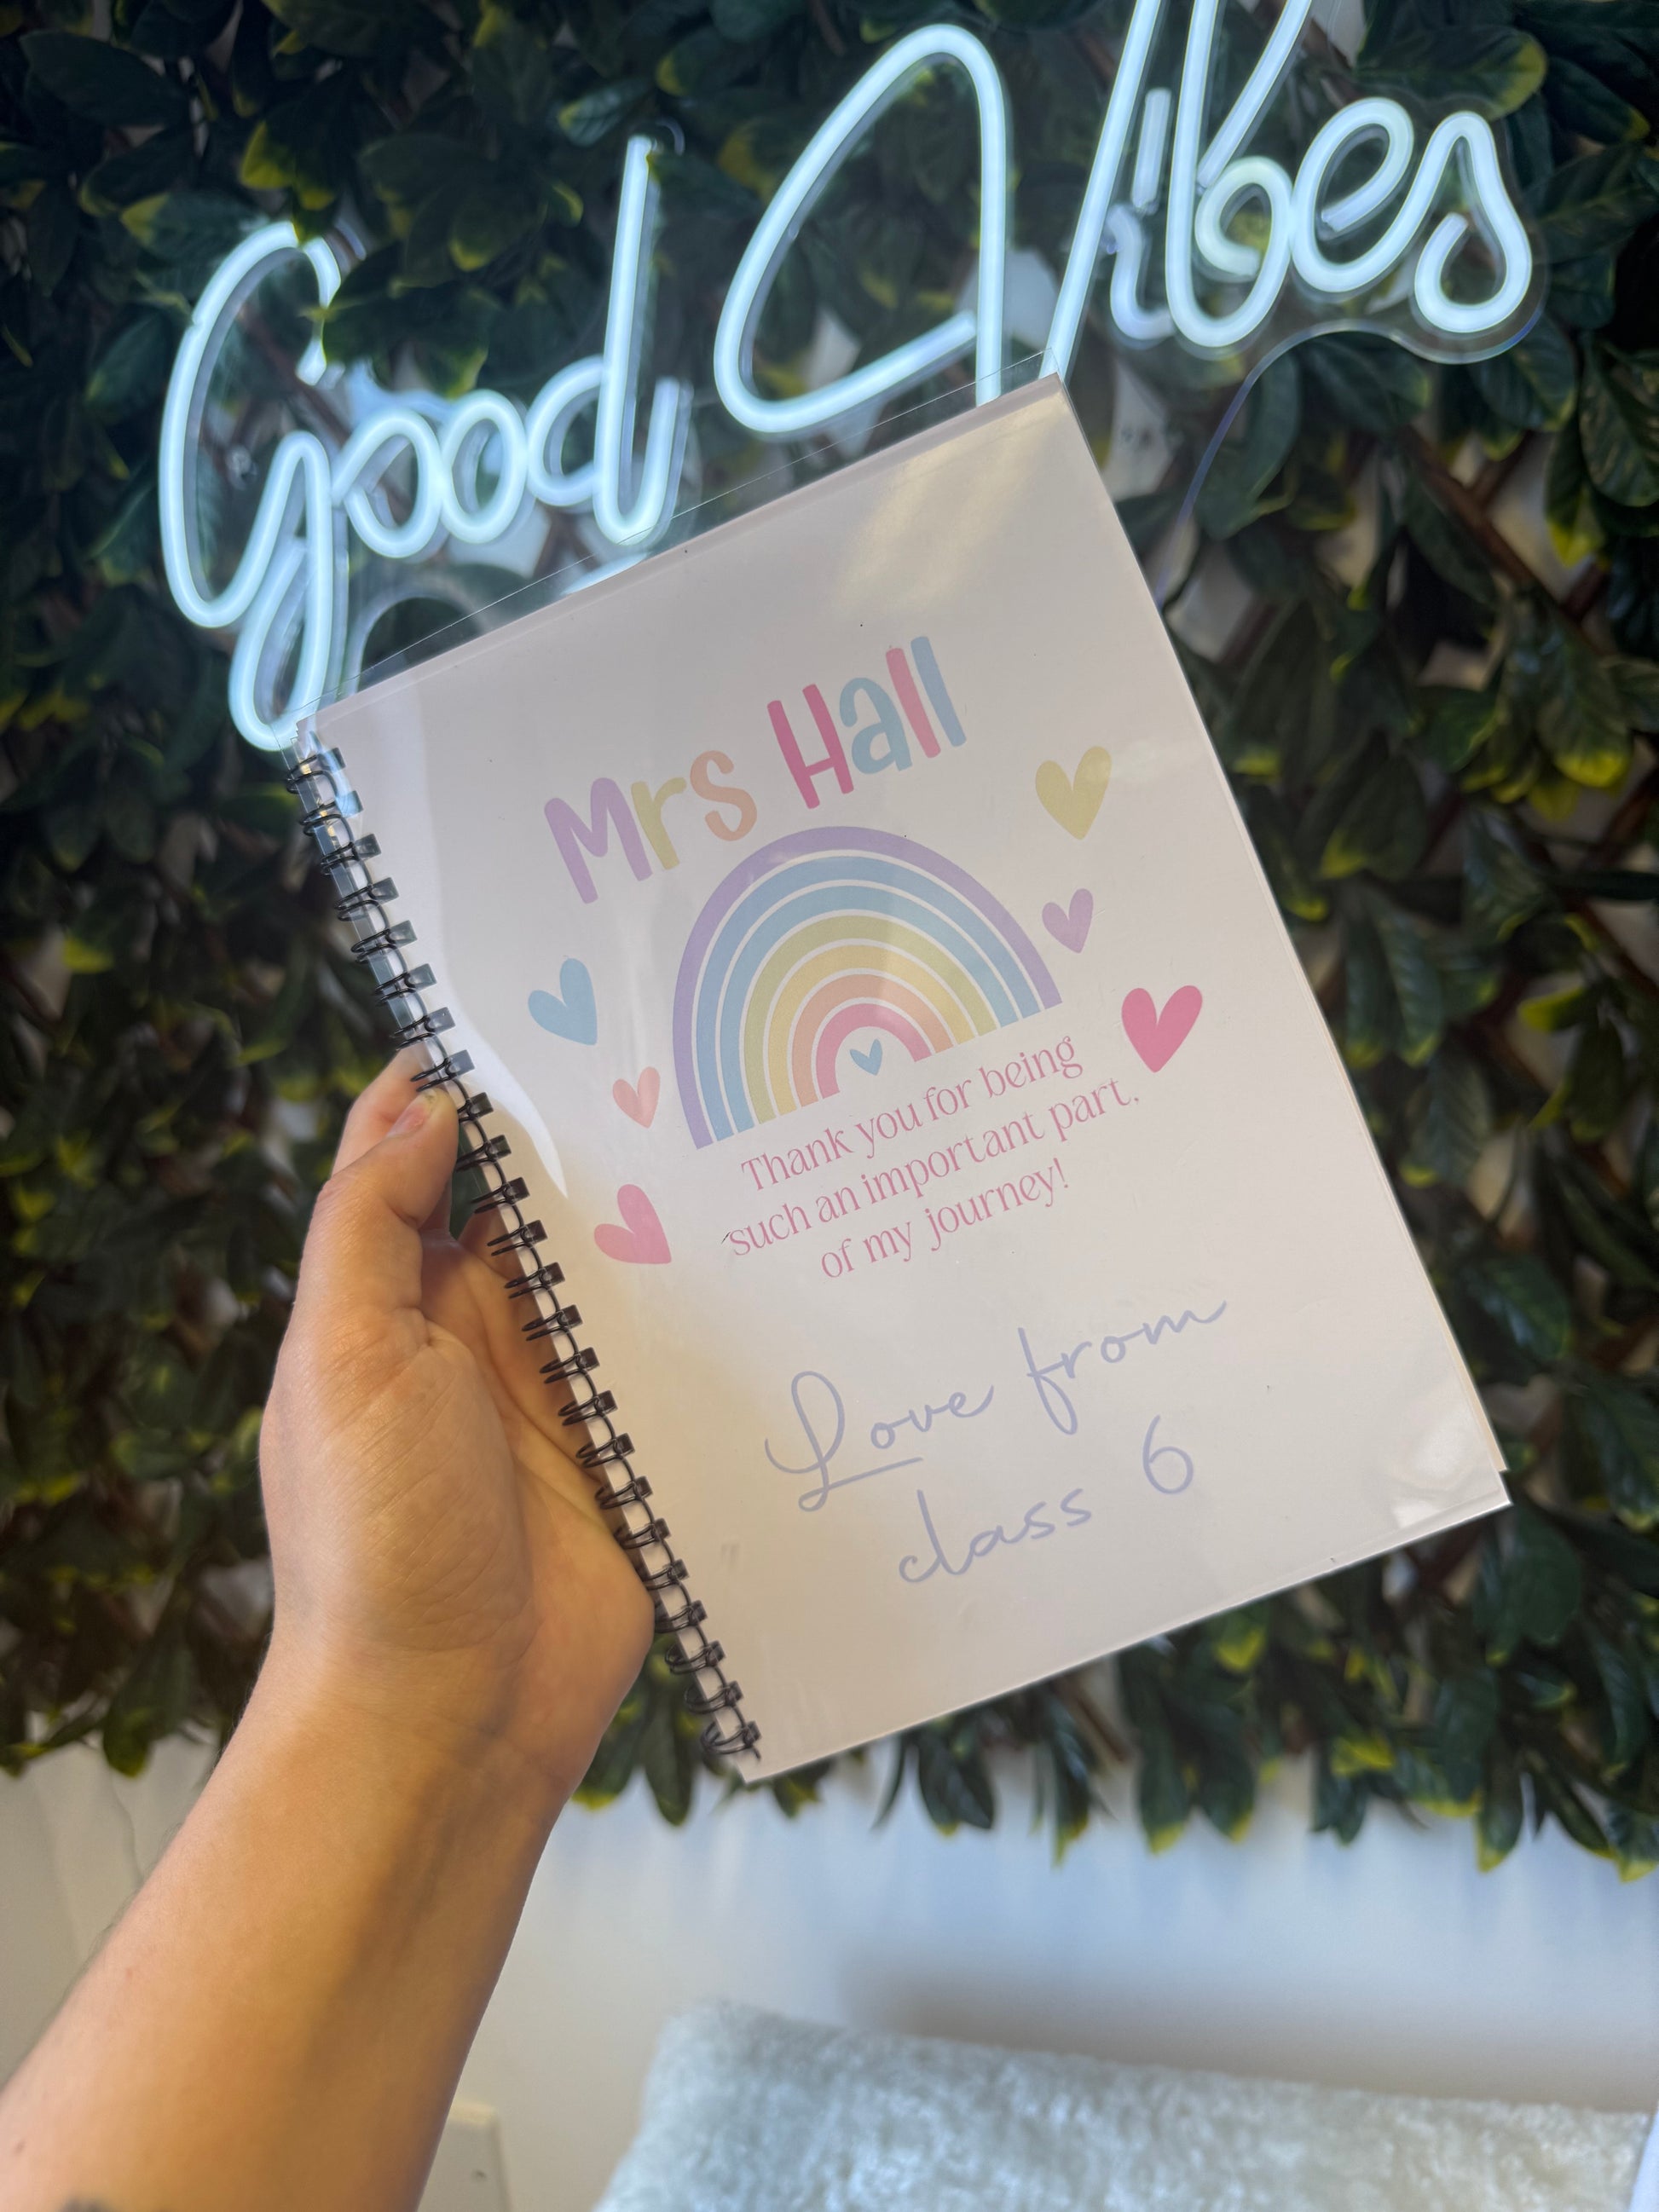 Good Vibes
Mrs Hall
Thank you for being
such an important part,
of my journey!
Love from
class 6